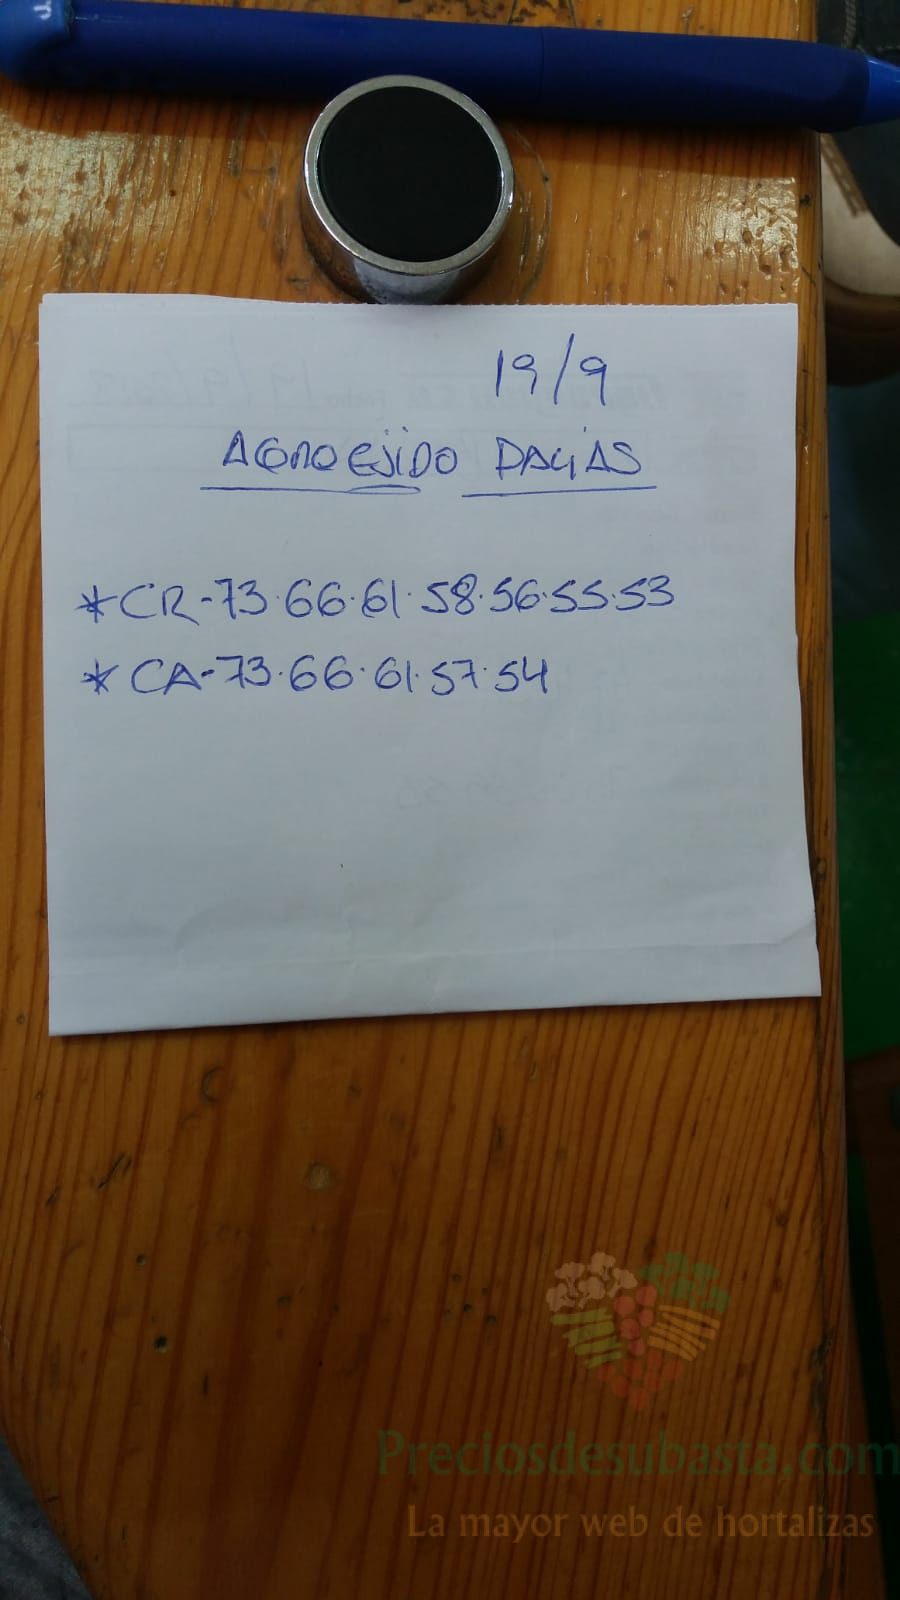 19/9
AGROEJIDO DALIAS
*CR-73.66.61.58.56.55.53
*CA-73.66.61.57.54
Preciosdesubasta.com
La mayor web de hortalizas